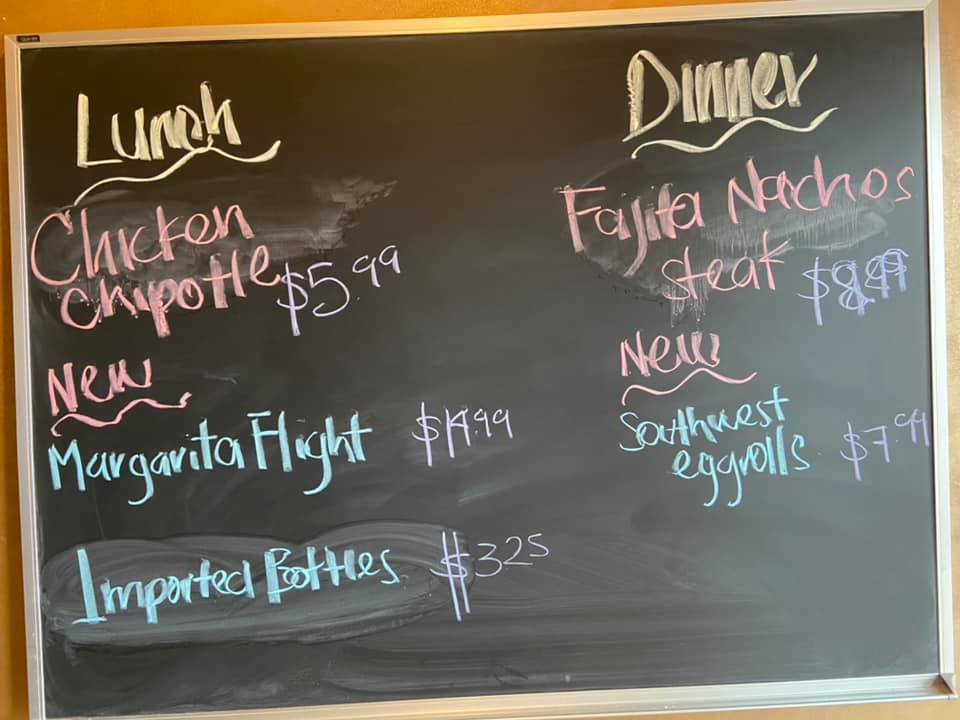 Lunch
Chicken
Chipotle $5.99
New
Margarita Flight $14.99
Imported Bottles $3.25
Dinner
Fajita Nachos
steak
New
Southwest
eggrolls $7.99